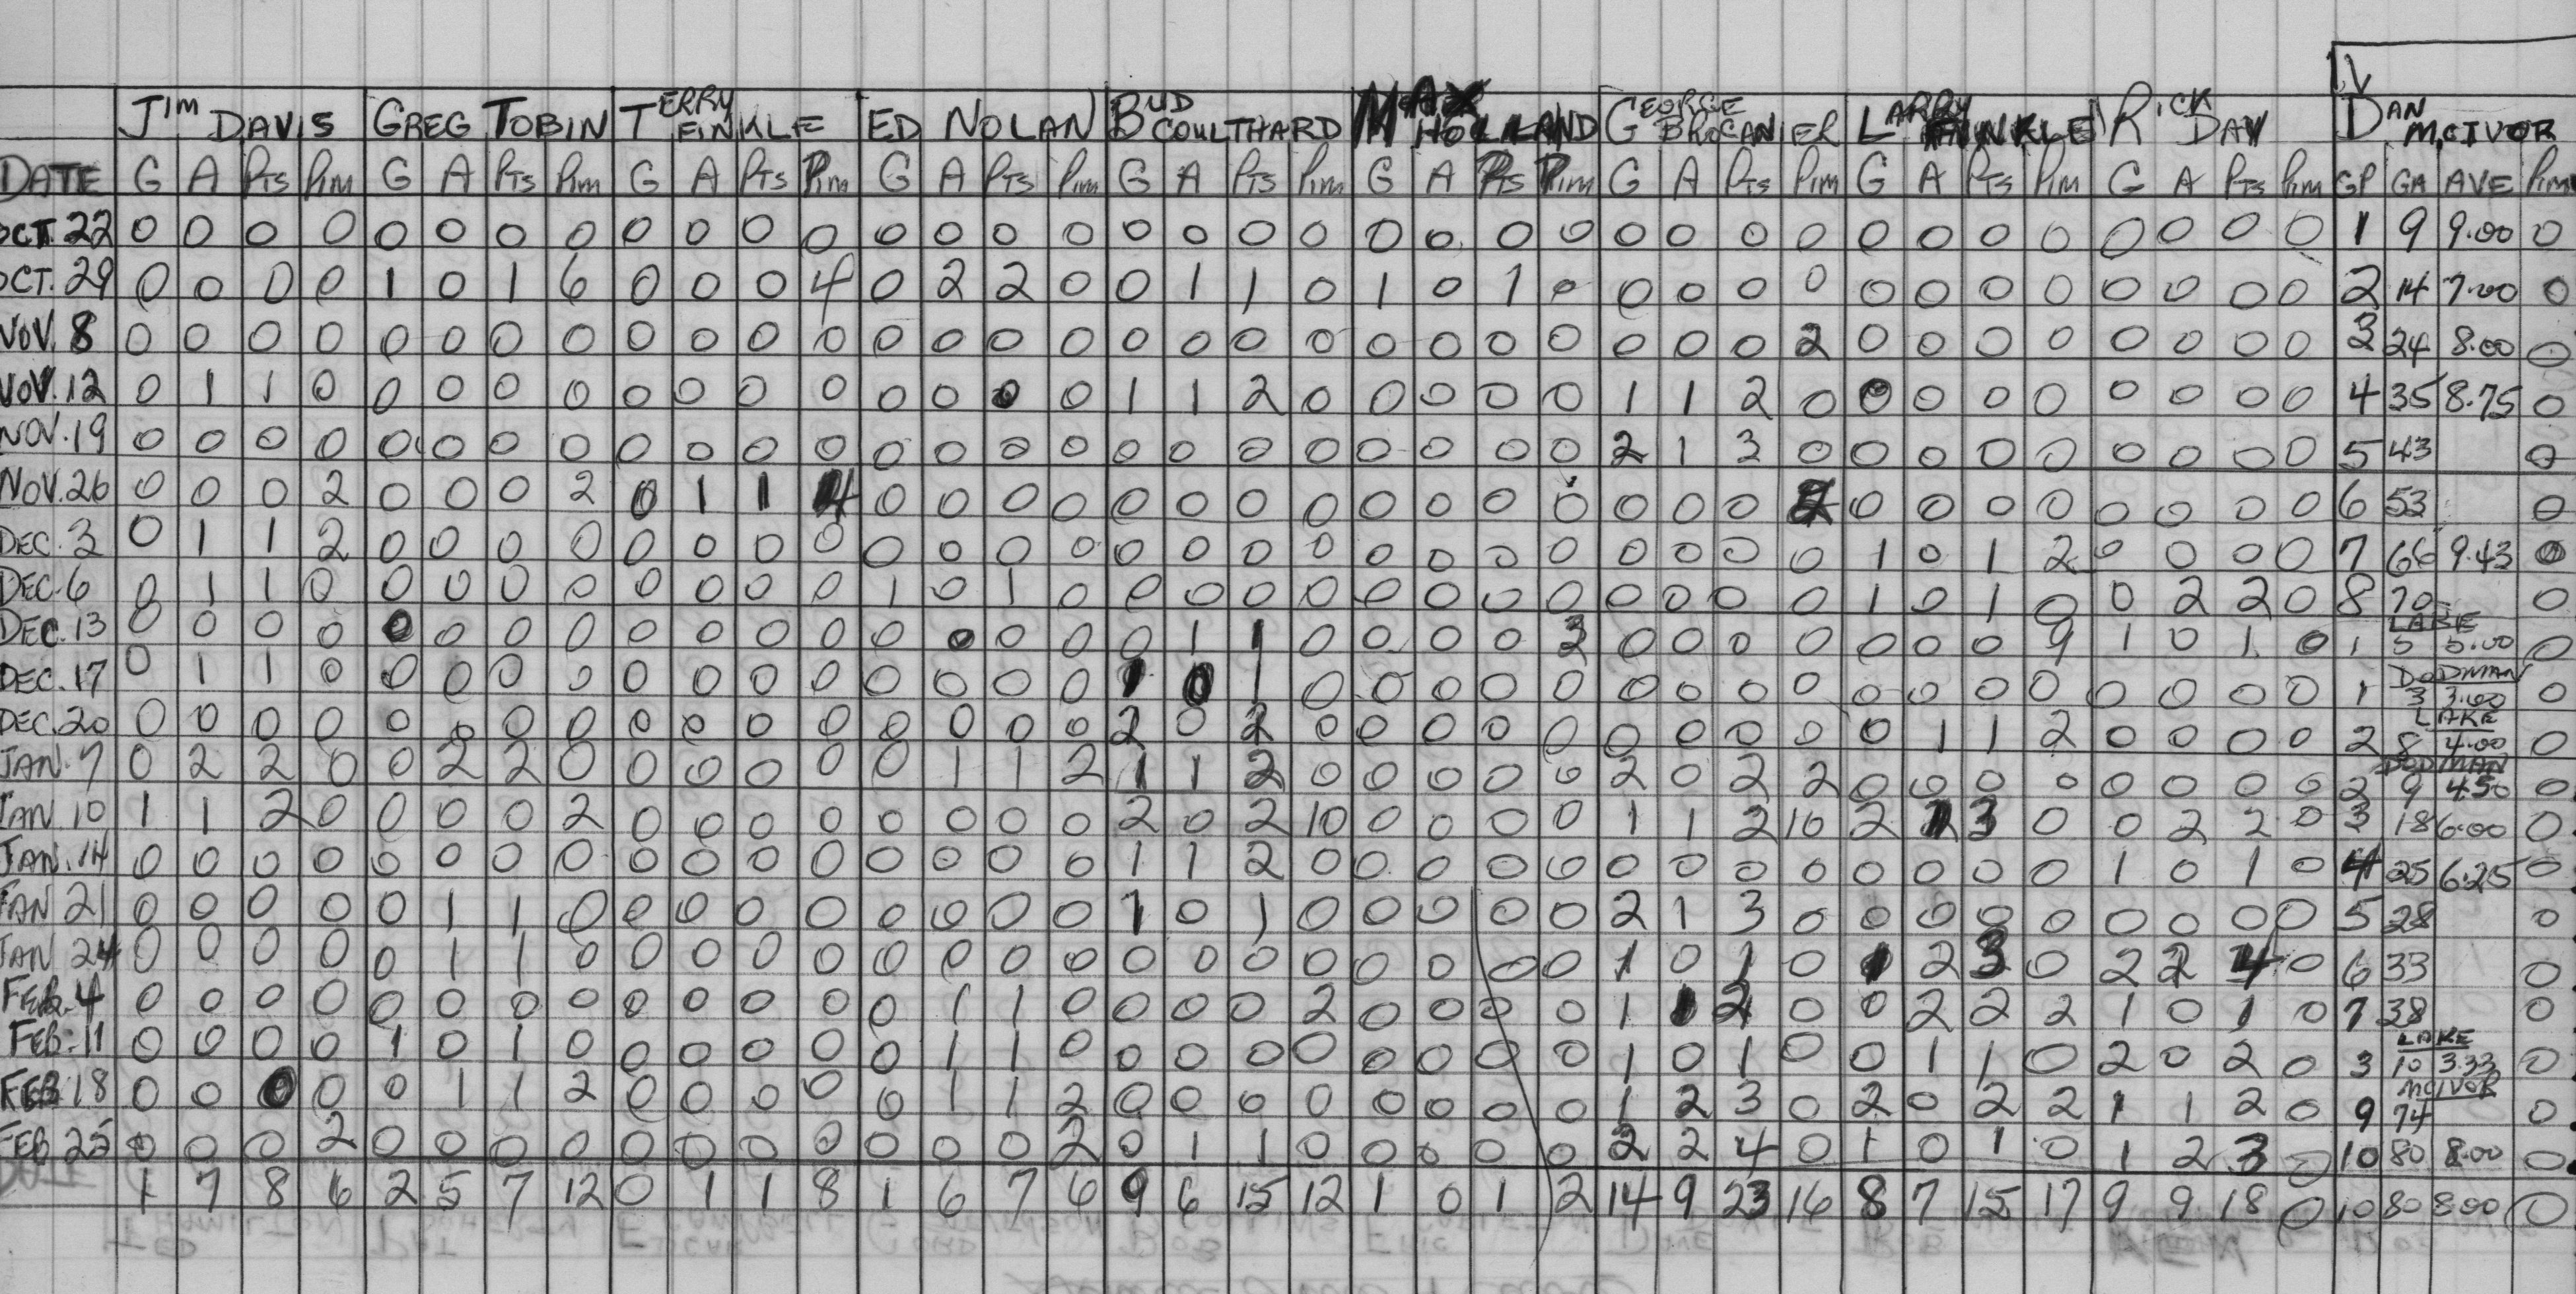 IV
JIM DAVIS GREG TOBIN TERRY FINKLE ED NOLAN BUD COULTHARD MAX HOLLAND GEORGE BROCANIER LARRY FINKLE RICK DAY DAN MCIVOR
DATE G A PTS PIM G A PTS PIM G A PTS PIM G A PTS PIM G A PTS PIM G A PTS PIM G A PTS PIM G A PTS PIM G A PTS PIM GP GA AVE PIM
OCT. 22 0 0 0 0 0 0 0 0 0 0 0 0 0 0 0 0 0 0 0 0 0 0 0 0 0 0 0 0 0 0 0 0 0 0 0 0 1 9 9.00 0
OCT. 29 0 0 0 0 1 0 1 6 0 0 0 4 0 2 2 0 0 1 1 0 1 0 1 0 0 0 0 0 0 0 0 0 0 0 0 0 2 14 7.00 0
NOV. 8 0 0 0 0 0 0 0 0 0 0 0 0 0 0 0 0 0 0 0 0 0 0 0 0 0 0 0 2 0 0 0 0 0 0 0 0 3 24 8.00 0
NOV. 12 0 1 1 0 0 0 0 0 0 0 0 0 0 0 0 0 1 1 2 0 0 0 0 0 1 1 2 0 0 0 0 0 0 0 0 0 4 35 8.75 0
NOV. 19 0 0 0 0 0 0 0 0 0 0 0 0 0 0 0 0 0 0 0 0 0 0 0 0 2 1 3 0 0 0 0 0 0 0 0 0 5 43 0
NOV. 26 0 0 0 2 0 0 0 2 0 1 1 4 0 0 0 0 0 0 0 0 0 0 0 0 0 0 0 2 0 0 0 0 0 0 0 0 6 53 0
DEC. 3 0 1 1 2 0 0 0 0 0 0 0 0 0 0 0 0 0 0 0 0 0 0 0 0 0 0 0 0 1 0 1 2 0 0 0 0 7 66 9.43 0
DEC. 6 0 1 1 0 0 0 0 0 0 0 0 0 1 0 1 0 0 0 0 0 0 0 0 0 0 0 0 0 1 0 1 0 0 2 2 0 8 70 0
LAKE
DEC. 13 0 0 0 0 0 0 0 0 0 0 0 0 0 0 0 0 0 1 1 0 0 0 0 2 0 0 0 0 0 0 0 9 1 0 1 0 1 5 5.00 0
DODMAN
DEC. 17 0 1 1 0 0 0 0 0 0 0 0 0 0 0 0 0 1 0 1 0 0 0 0 0 0 0 0 0 0 0 0 0 0 0 0 0 1 3 3.00 0
LAKE
DEC. 20 0 0 0 0 0 0 0 0 0 0 0 0 0 0 0 0 2 0 2 0 0 0 0 0 0 0 0 0 0 1 1 2 0 0 0 0 2 8 4.00 0
DODMAN
JAN. 7 0 2 2 0 0 2 2 0 0 0 0 0 0 1 1 2 1 1 2 0 0 0 0 0 2 0 2 2 0 0 0 0 0 0 0 0 2 9 4.50 0
JAN. 10 1 1 2 0 0 0 0 2 0 0 0 0 0 0 0 0 2 0 2 10 0 0 0 0 1 1 2 10 2 1 3 0 0 2 2 0 3 18 6.00 0
JAN. 14 0 0 0 0 0 0 0 0 0 0 0 0 0 0 0 0 1 1 2 0 0 0 0 0 0 0 0 0 0 0 0 0 1 0 1 0 4 25 6.25 0
JAN 21 0 0 0 0 0 1 1 0 0 0 0 0 0 0 0 0 1 0 1 0 0 0 0 0 2 1 3 0 0 0 0 0 0 0 0 0 5 28 0
JAN 24 0 0 0 0 0 1 1 0 0 0 0 0 0 0 0 0 0 0 0 0 0 0 0 0 1 0 1 0 1 2 3 0 2 2 4 0 6 33 0
FEB. 4 0 0 0 0 0 0 0 0 0 0 0 0 0 1 1 0 0 0 0 2 0 0 0 0 1 1 2 0 0 2 2 2 1 0 1 0 7 38 0
LAKE
FEB. 11 0 0 0 0 1 0 1 0 0 0 0 0 0 1 1 0 0 0 0 0 0 0 0 0 1 0 1 0 0 1 1 0 2 0 2 0 3 10 3.33 0
MCIVOR
FEB 18 0 0 0 0 0 1 1 2 0 0 0 0 0 1 1 2 0 0 0 0 0 0 0 0 1 2 3 0 2 0 2 2 1 1 2 0 9 74 0
FEB 25 0 0 0 2 0 0 0 0 0 0 0 0 0 0 0 2 0 1 1 0 0 0 0 0 2 2 4 0 1 0 1 0 1 2 3 0 10 80 8.00 0
1 7 8 6 2 5 7 12 0 1 1 8 1 6 7 6 9 6 15 12 1 0 1 2 14 9 23 16 8 7 15 17 9 9 18 0 10 80 8.00 0